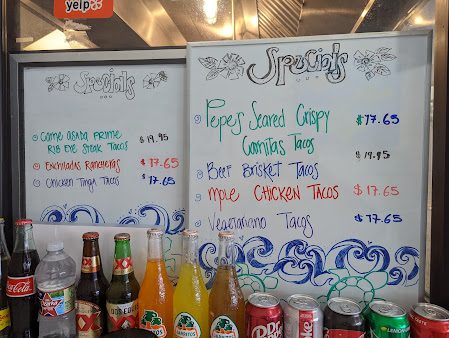 yelp
Specials
Carne Asada Prime
Rib Eye Steak Tacos $19.95
Enchiladas Rancheras $17.65
Chicken Tinga Tacos $17.65
Specials
Pepe's Seared Crispy
Carnitas Tacos $17.65
Beef Brisket Tacos $19.95
mole CHICKEN TACOS $17.65
Vegetariano Tacos $17.65
Coca-Cola
XX
DOS EQUIS
JARRITOS
JARRITOS
JARRITOS
Dr Pepper
Coke
Coca-Cola